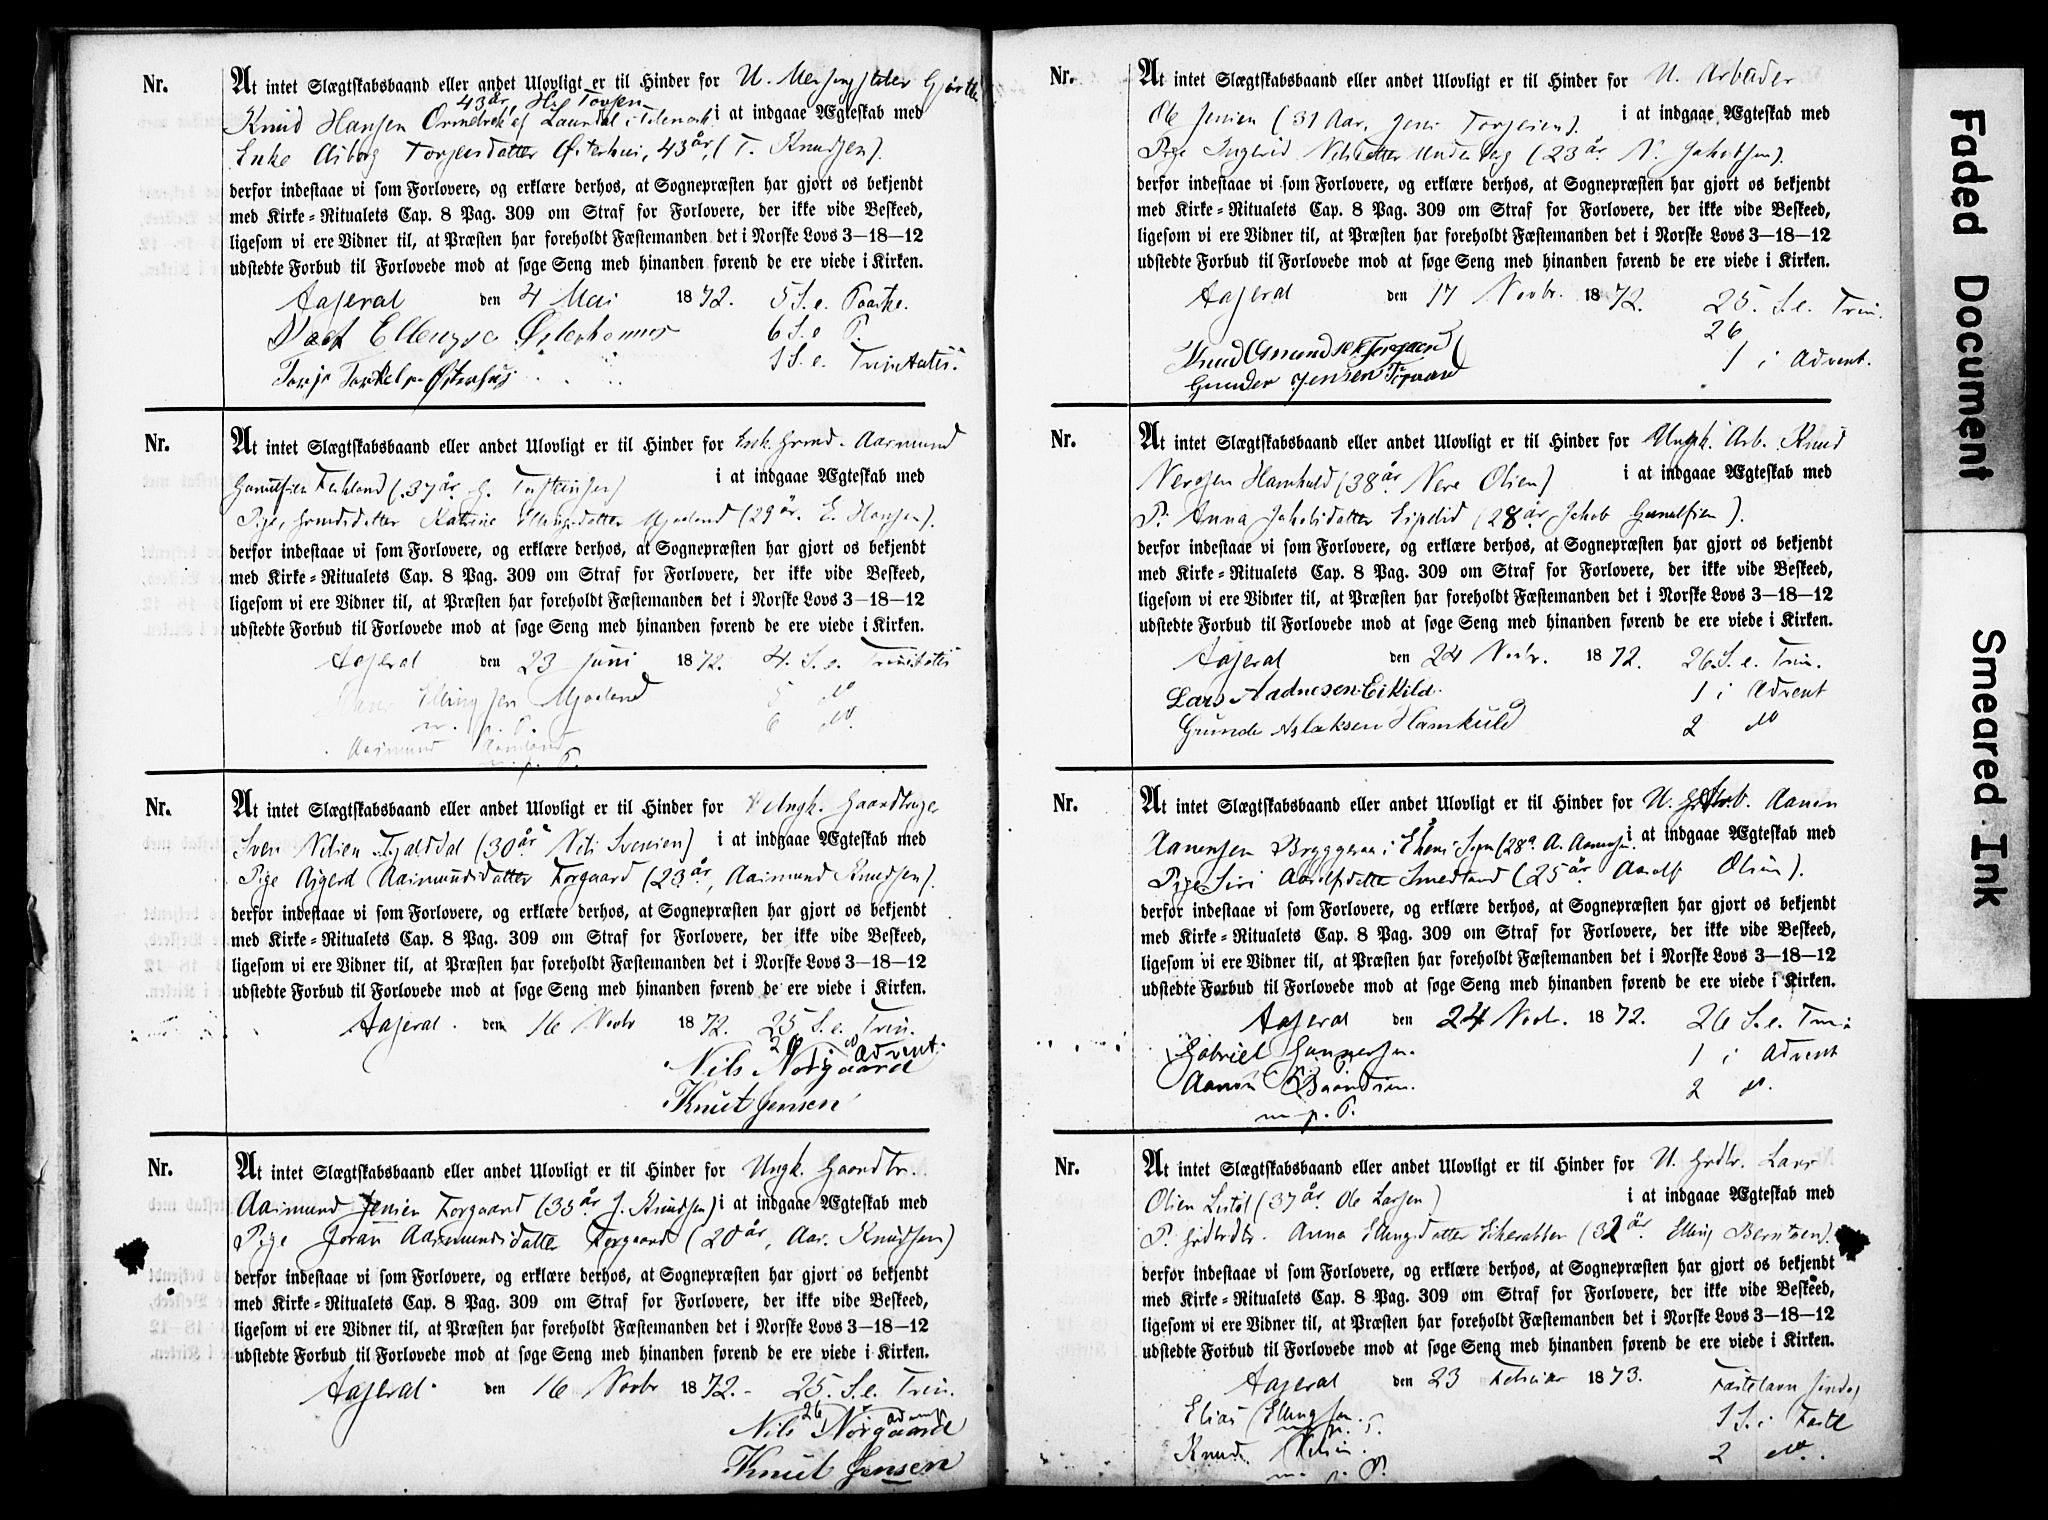 Nr.
At intet Slægtskabsbaand eller andet Ulovligt er til Hinder for U.
43 år
Knud Hansen i at indgaae Ægteskab med
Enke Asborg Torjersdatter Østerhus, 43 år, (T. Knudsen).
derfor indestaae vi som Forlovere, og erklære derhos, at Sognepræsten har gjort os bekjendt
med Kirke-Ritualets Cap. 8 Pag. 309 om Straf for Forlovere, der ikke vide Beskeed,
ligesom vi ere Vidner til, at Præsten har foreholdt Fæstemanden det i Norske Lovs 3—18—12
udstedte Forbud til Forlovede mod at søge Seng med hinanden førend de ere viede i Kirken.
Aaseral den 4 Mai 1872. 5 S. e. Paaske.
6 S. e P.
1 S. e. Trinitatis
Nr.
At intet Slægtskabsbaand eller andet Ulovligt er til Hinder for Enk. Grmd. Aasmund
(37 år. G. Torsteinsen) i at indgaae Ægteskab med
Pige, Katrine Ellingsdatter Mjaaland (29 år. E. Hansen).
derfor indestaae vi som Forlovere, og erklære derhos, at Sognepræsten har gjort os bekjendt
med Kirke-Ritualets Cap. 8 Pag. 309 om Straf for Forlovere, der ikke vide Beskeed,
ligesom vi ere Vidner til, at Præsten har foreholdt Fæstemanden det i Norske Lovs 3—18—12
udstedte Forbud til Forlovede mod at søge Seng med hinanden førend de ere viede i Kirken.
Aaseral den 23 Juni 1872. 4. S. e. Trinitatis
Ellingsen Mjaaland 5 do
m. p. P. 6 do.
Aasmund
m. p. P.
Nr.
At intet Slægtskabsbaand eller andet Ulovligt er til Hinder for Ungk. Gaardbruger
Sven Nilsen (30 år Nils Svensen) i at indgaae Ægteskab med
Pige Asgerd Aasmundsdatter Torgaard (23 år, Aasmund Knudsen).
derfor indestaae vi som Forlovere, og erklære derhos, at Sognepræsten har gjort os bekjendt
med Kirke-Ritualets Cap. 8 Pag. 309 om Straf for Forlovere, der ikke vide Beskeed,
ligesom vi ere Vidner til, at Præsten har foreholdt Fæstemanden det i Norske Lovs 3—18—12
udstedte Forbud til Forlovede mod at søge Seng med hinanden førend de ere viede i Kirken.
Aaseral. den 16 Novbr 1872. 25 S. e. Trin.
26 do
1 Advent.
Nils Norgaard
Knut Jensen
Nr.
At intet Slægtskabsbaand eller andet Ulovligt er til Hinder for Ungk. Gaardbr.
Aasmund Jensen Torgaard (35 år. J. Knudsen) i at indgaae Ægteskab med
Pige Joran Aasmundsdatter Torgaard (20 år, Aas. Knudsen)
derfor indestaae vi som Forlovere, og erklære derhos, at Sognepræsten har gjort os bekjendt
med Kirke-Ritualets Cap. 8 Pag. 309 om Straf for Forlovere, der ikke vide Beskeed,
ligesom vi ere Vidner til, at Præsten har foreholdt Fæstemanden det i Norske Lovs 3—18—12
udstedte Forbud til Forlovede mod at søge Seng med hinanden førend de ere viede i Kirken.
Aaseral. den 16 Novbr 1872. 25. S. e. Trin.
26
Nils Norgaard
Knut Jensen
Nr.
At intet Slægtskabsbaand eller andet Ulovligt er til Hinder for U. Arbeider
Ole Jensen (31 Aar. Jens Torgersen). i at indgaae Ægteskab med
Pige Ingerid Nilsdatter (23 år N. Jakobsen).
derfor indestaae vi som Forlovere, og erklære derhos, at Sognepræsten har gjort os bekjendt
med Kirke-Ritualets Cap. 8 Pag. 309 om Straf for Forlovere, der ikke vide Beskeed,
ligesom vi ere Vidner til, at Præsten har foreholdt Fæstemanden det i Norske Lovs 3—18—12
udstedte Forbud til Forlovede mod at søge Seng med hinanden førend de ere viede i Kirken.
Aaseral den 17 Novbr. 1872. 25. S. e. Trin.
26
Knud 1 i Advent.
Gunder Jensen
Nr.
At intet Slægtskabsbaand eller andet Ulovligt er til Hinder for Ungk. Arb. Knud
(38 år Olsen) i at indgaae Ægteskab med
P. Anna Jakobsdatter (28 år Jakob Gunulfsen).
derfor indestaae vi som Forlovere, og erklære derhos, at Sognepræsten har gjort os bekjendt
med Kirke-Ritualets Cap. 8 Pag. 309 om Straf for Forlovere, der ikke vide Beskeed,
ligesom vi ere Vidner til, at Præsten har foreholdt Fæstemanden det i Norske Lovs 3—18—12
udstedte Forbud til Forlovede mod at søge Seng med hinanden førend de ere viede i Kirken.
Aaseral den 24 Novbr. 1872. 26. S. e. Trin.
Lars Aadnesen Eikild. 1 i Advent
Gunde Aslaksen Hamkuld 2 do
Nr.
At intet Slægtskabsbaand eller andet Ulovligt er til Hinder for U. Aanen
Aanensen i Sogn (28 a. A. Aanensen). i at indgaae Ægteskab med
Pige Siri Aasolfsdatter Smedland (25 år Aasolf Olsen).
derfor indestaae vi som Forlovere, og erklære derhos, at Sognepræsten har gjort os bekjendt
med Kirke-Ritualets Cap. 8 Pag. 309 om Straf for Forlovere, der ikke vide Beskeed,
ligesom vi ere Vidner til, at Præsten har foreholdt Fæstemanden det i Norske Lovs 3—18—12
udstedte Forbud til Forlovede mod at søge Seng med hinanden førend de ere viede i Kirken.
Aaseral den 24 Novbr. 1872. 26 S. e. Trin
Gabriel Gunnersen. 1 i Advent
Aanen 2 do.
m. p. P.
Nr.
At intet Slægtskabsbaand eller andet Ulovligt er til Hinder for U. Grdbr. Lars
Olsen (37 år. Ole Larsen) i at indgaae Ægteskab med
P. Grdbrdtr. Anna Ellingsdatter (32 år. Elling Berntsen).
derfor indestaae vi som Forlovere, og erklære derhos, at Sognepræsten har gjort os bekjendt
med Kirke-Ritualets Cap. 8 Pag. 309 om Straf for Forlovere, der ikke vide Beskeed,
ligesom vi ere Vidner til, at Præsten har foreholdt Fæstemanden det i Norske Lovs 3—18—12
udstedte Forbud til Forlovede mod at søge Seng med hinanden førend de ere viede i Kirken.
Aaseral den 23 Februar 1873. Fastelavn Søndag
Elias Ellingsen. 1 S. i Faste
m. p. P.
Knud 2 do.
m. p. P.
Faded Document
Smeared Ink